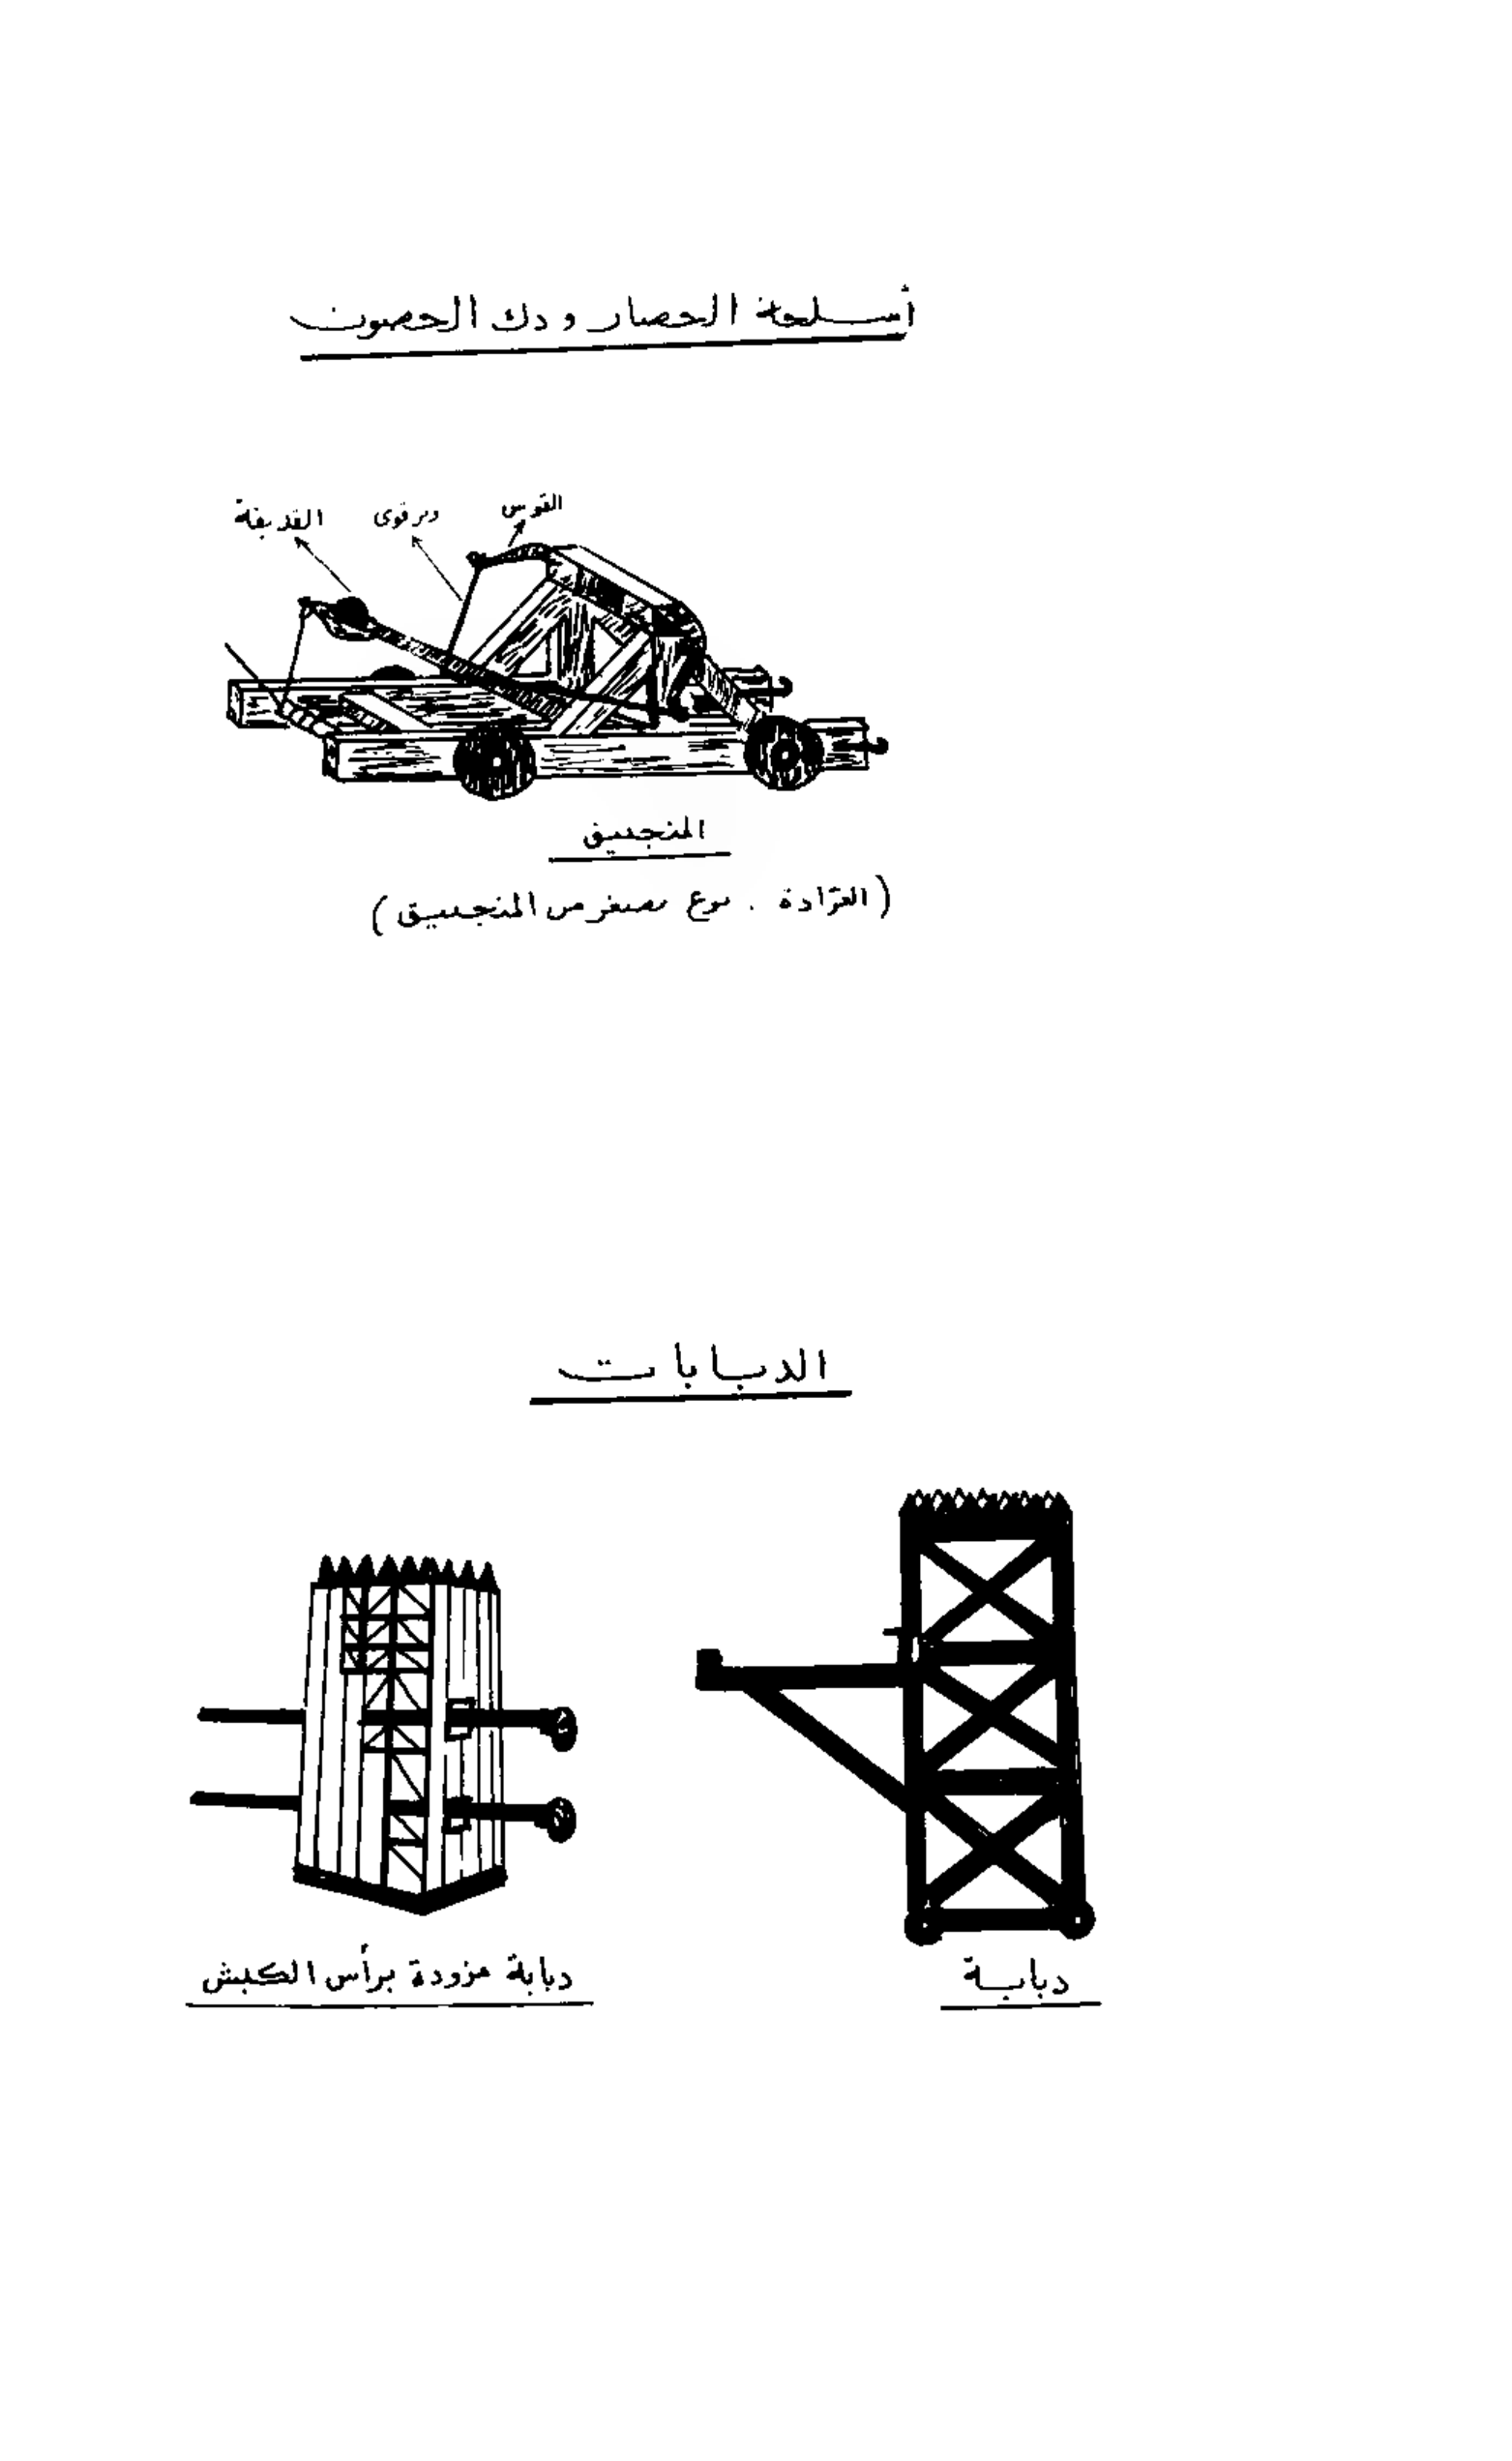 أسلحة الحصار ودك الحصون
القوس
وتر قوى
القذيفة
المنجنيق
(العرّادة . نوع مصغر من المنجنيق)
الدبابات
دبابة
دبابة مزودة برأس الكبش